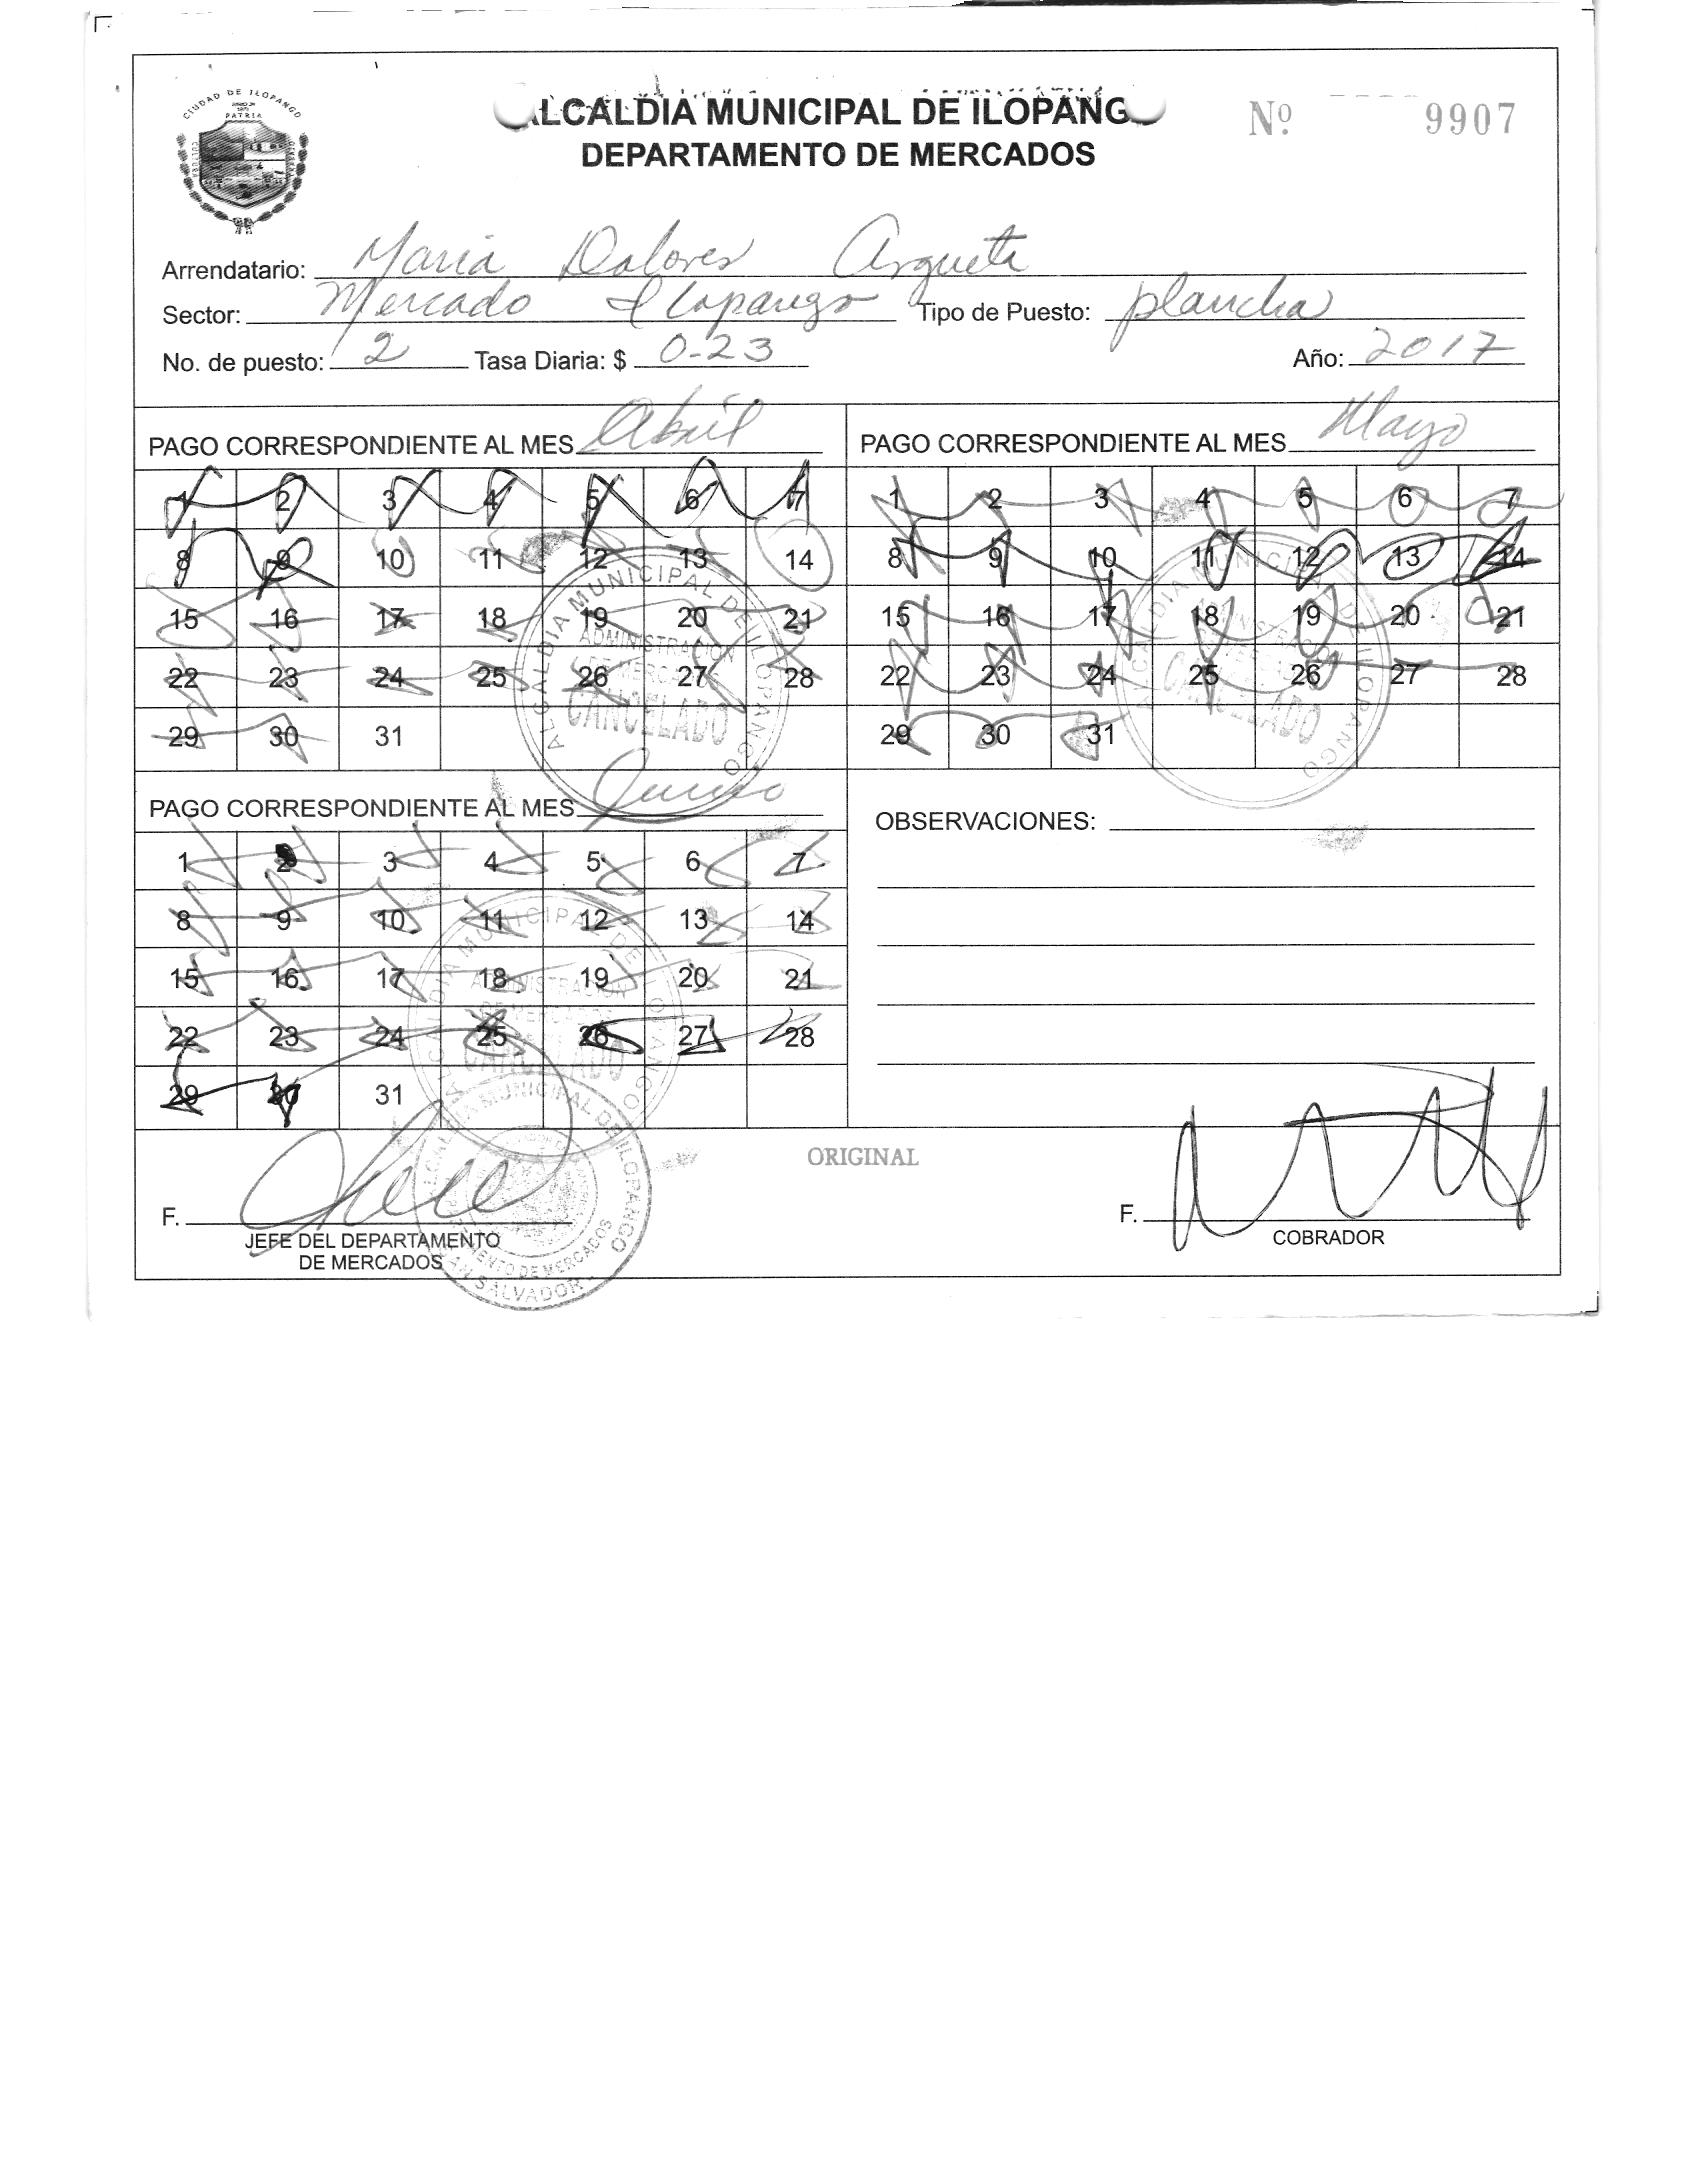 CIUDAD DE ILOPANGO
PATRIA
ALCALDIA MUNICIPAL DE ILOPANG
DEPARTAMENTO DE MERCADOS
Nº 9907
Arrendatario: Maria Dolores Argueta
Sector: Mercado Ilopango Tipo de Puesto: plancha
No. de puesto: 2 Tasa Diaria: $ 0-23 Año: 2017
PAGO CORRESPONDIENTE AL MES Abril
1 2 3 4 5 6 7
8 9 10 11 12 13 14
15 16 17 18 19 20 21
22 23 24 25 26 27 28
29 30 31
ALCALDIA MUNICIPAL DE ILOPANGO
ADMINISTRACION
DE MERCADOS
CANCELADO
PAGO CORRESPONDIENTE AL MES Mayo
1 2 3 4 5 6 7
8 9 10 11 12 13 14
15 16 17 18 19 20 21
22 23 24 25 26 27 28
29 30 31
ALCALDIA MUNICIPAL DE ILOPANGO
ADMINISTRACION
DE MERCADOS
CANCELADO
PAGO CORRESPONDIENTE AL MES Junio
1 2 3 4 5 6 7
8 9 10 11 12 13 14
15 16 17 18 19 20 21
22 23 24 25 26 27 28
29 30 31
ALCALDIA MUNICIPAL DE ILOPANGO
ADMINISTRACION
DE MERCADOS
CANCELADO
OBSERVACIONES:
ORIGINAL
F.
JEFE DEL DEPARTAMENTO
DE MERCADOS
ALCALDIA MUNICIPAL DE ILOPANGO
DEPARTAMENTO DE MERCADOS
SAN SALVADOR
F.
COBRADOR